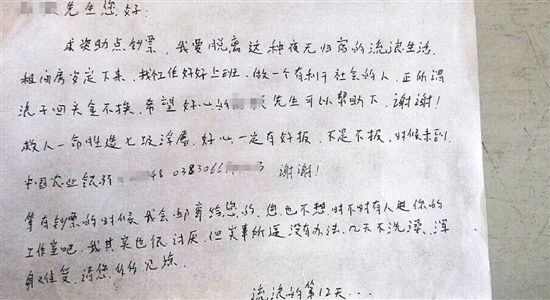 先生您好:
求资助点钞票,我要脱离这种夜无归宿的流浪生活,
租间房安定下来,找工作好好上班,做一个有利于社会的人,正所谓
浪子回头金不换,希望好心的 先生可以帮助下,谢谢!
救人一命胜造七级浮屠,好心一定有好报,不是不报,时候未到.
中国农业银行 48 0383066 3 谢谢!
等有钞票的时候我会邮寄给您的,您也不想时不时有人逛你的
工作室吧,我其实也很讨厌,但实事所逼没有办法,几天不洗澡,浑
身难受,请您
流浪的第12天...